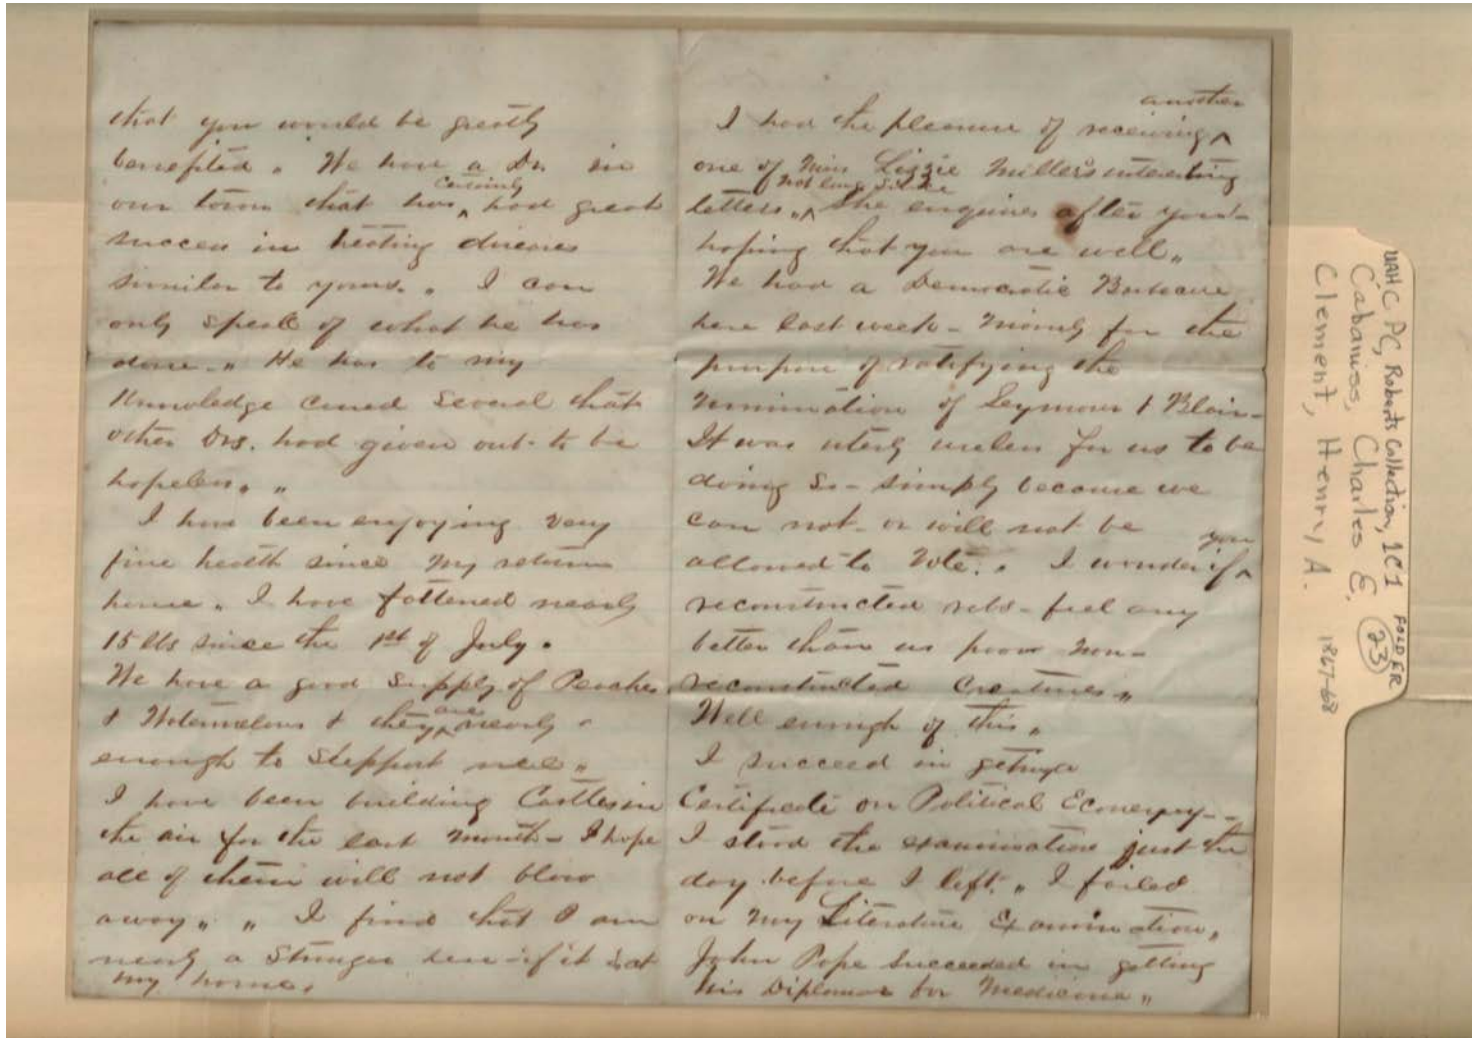 that you would be greatly
benefited. We have a Dr. in
certainly
our town that has ^ had great
success in treating diseases
similar to yours. " I can
only speak of what he has
done. " He has to my
Knowledge cured several that
other Drs. had given out to be
hopeless. "
I have been enjoying very
fine health since my return
home. I have fattened nearly
15 lbs since the 1st of July.
We have a good supply of Peaches
are
& Watermelons & they ^ nearly
enough to support me "
I have been building Castles in
the air for the last month - I hope
all of them will not blow
away " " I find that I am
nearly a Stranger here - if it is at
my home.
another
I had the pleasure of receiving ^
one of Miss Lizzie Miller's interesting
not long since
letters " ^ She enquires after you -
hoping that you are well "
We had a Democratic Barbecue
here last week - Mainly for the
purpose of ratifying the
Nomination of Seymour & Blair -
It was uterly useless for us to be
doing so - simply because we
can not - or will not be
you
allowed to Vote. . I wonder if ^
reconstructed rebs - feel any
better than us poor non-
reconstructed Creatures "
Well enough of this "
I succeed in geting a
Certificate on Political Economy - -
I stood the examination just the
day before I left. " I failed
on my Literature Examination "
John Pope succeeded in getting
his Diploma for Medicine "
UAH C PC, Roberts Collection, 1C1 FOLDER
Cabaniss, Charles E. 23
Clement, Henry A. 1867-68